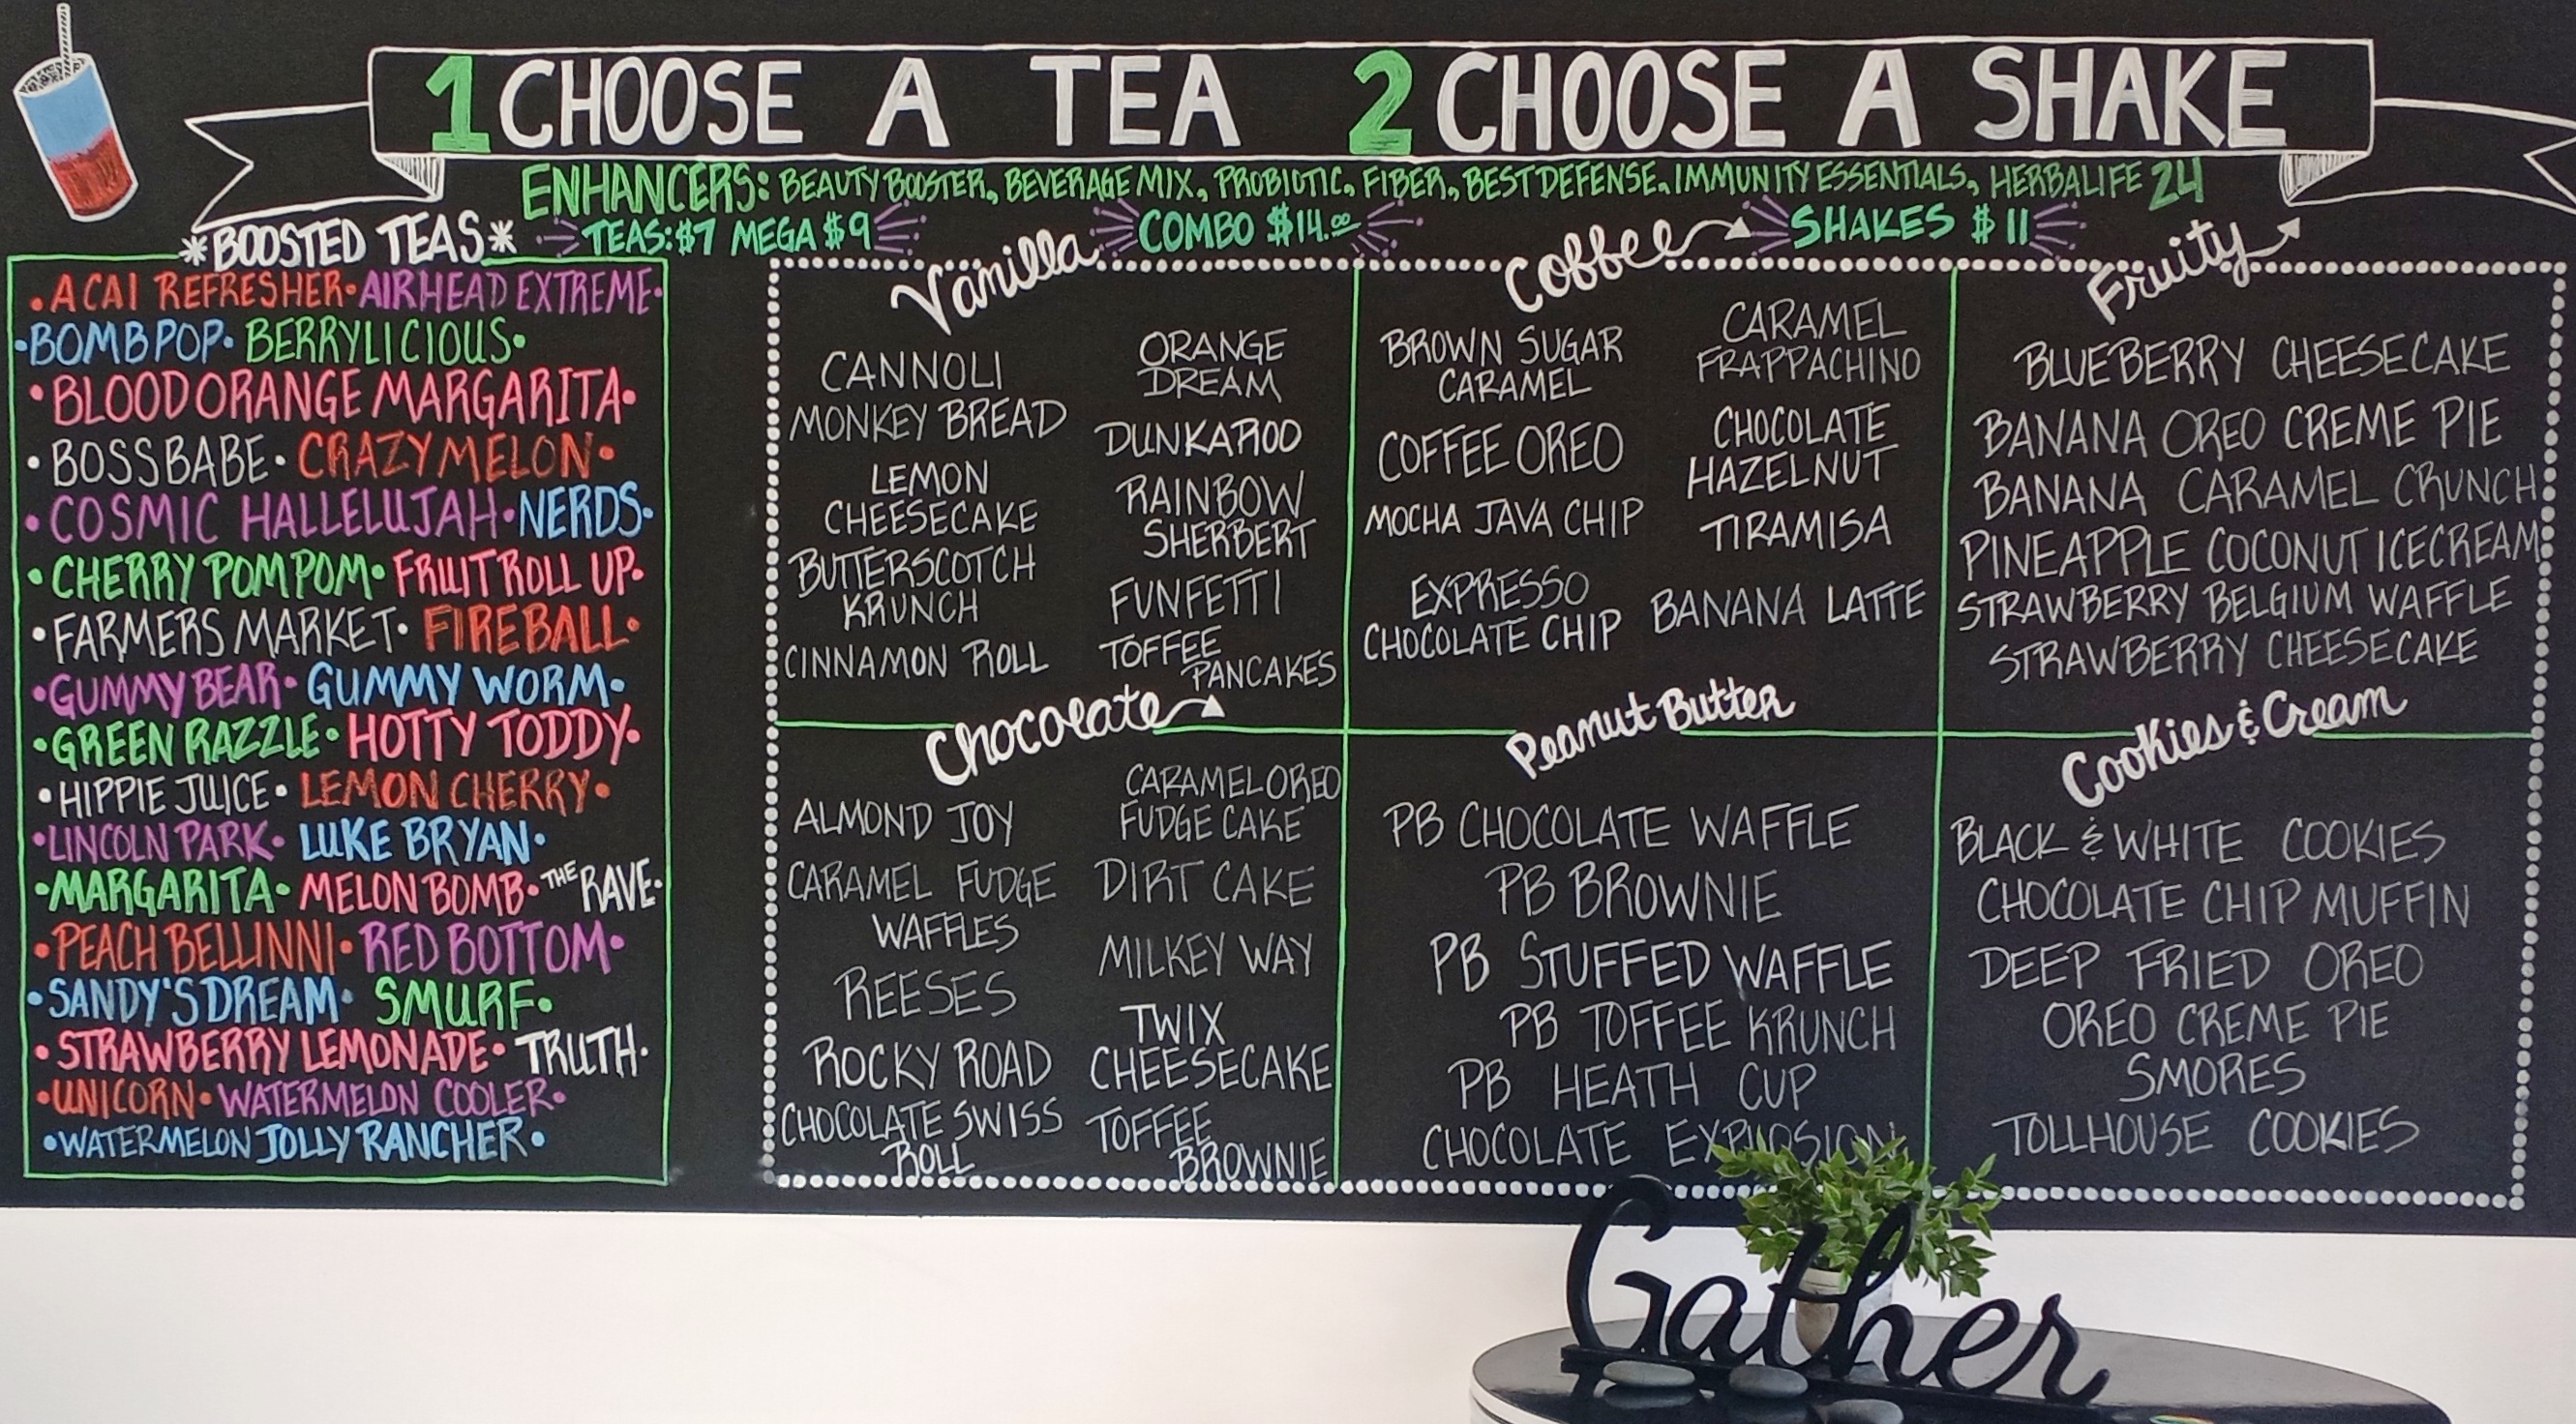 1 CHOOSE A TEA 2 CHOOSE A SHAKE
ENHANCERS: BEAUTY BOOSTER, BEVERAGE MIX, PROBIOTIC, FIBER, BEST DEFENSE, IMMUNITY ESSENTIALS, HERBALIFE 24
TEAS: $7 MEGA $9
COMBO $14.00
SHAKES $11
*BOOSTED TEAS*
•ACAI REFRESHER•AIRHEAD EXTREME•
•BOMB POP•BERRYLICIOUS•
•BLOOD ORANGE MARGARITA•
•BOSSBABE•CRAZY MELON•
•COSMIC HALLELUJAH•NERDS•
•CHERRY POM POM•FRUIT ROLL UP•
•FARMERS MARKET•FIREBALL•
•GUMMY BEAR•GUMMY WORM•
•GREEN RAZZLE•HOTTY TODDY•
•HIPPIE JUICE•LEMON CHERRY•
•LINCOLN PARK•LUKE BRYAN•
•MARGARITA•MELON BOMB•THE RAVE•
•PEACH BELLINNI•RED BOTTOM•
•SANDY'S DREAM•SMURF•
•STRAWBERRY LEMONADE•TRUTH•
•UNICORN•WATERMELON COOLER•
•WATERMELON JOLLY RANCHER•
Vanilla
CANNOLI
MONKEY BREAD
LEMON
CHEESECAKE
BUTTERSCOTCH
KRUNCH
CINNAMON ROLL
ORANGE
DREAM
DUNKAROO
RAINBOW
SHERBERT
FUNFETTI
TOFFEE
PANCAKES
Coffee
BROWN SUGAR
CARAMEL
COFFEE OREO
MOCHA JAVA CHIP
EXPRESSO
CHOCOLATE CHIP
CARAMEL
FRAPPACHINO
CHOCOLATE
HAZELNUT
TIRAMISA
BANANA LATTE
Fruity
BLUEBERRY CHEESECAKE
BANANA OREO CREME PIE
BANANA CARAMEL CRUNCH
PINEAPPLE COCONUT ICECREAM
STRAWBERRY BELGIUM WAFFLE
STRAWBERRY CHEESECAKE
Chocolate
ALMOND JOY
CARAMEL FUDGE
WAFFLES
REESES
ROCKY ROAD
CHOCOLATE SWISS
ROLL
CARAMEL OREO
FUDGE CAKE
DIRT CAKE
MILKEY WAY
TWIX
CHEESECAKE
TOFFEE
BROWNIE
Peanut Butter
PB CHOCOLATE WAFFLE
PB BROWNIE
PB STUFFED WAFFLE
PB TOFFEE KRUNCH
PB HEATH CUP
CHOCOLATE EXPLOSION
Cookies & Cream
BLACK & WHITE COOKIES
CHOCOLATE CHIP MUFFIN
DEEP FRIED OREO
OREO CREME PIE
SMORES
TOLLHOUSE COOKIES
Gather